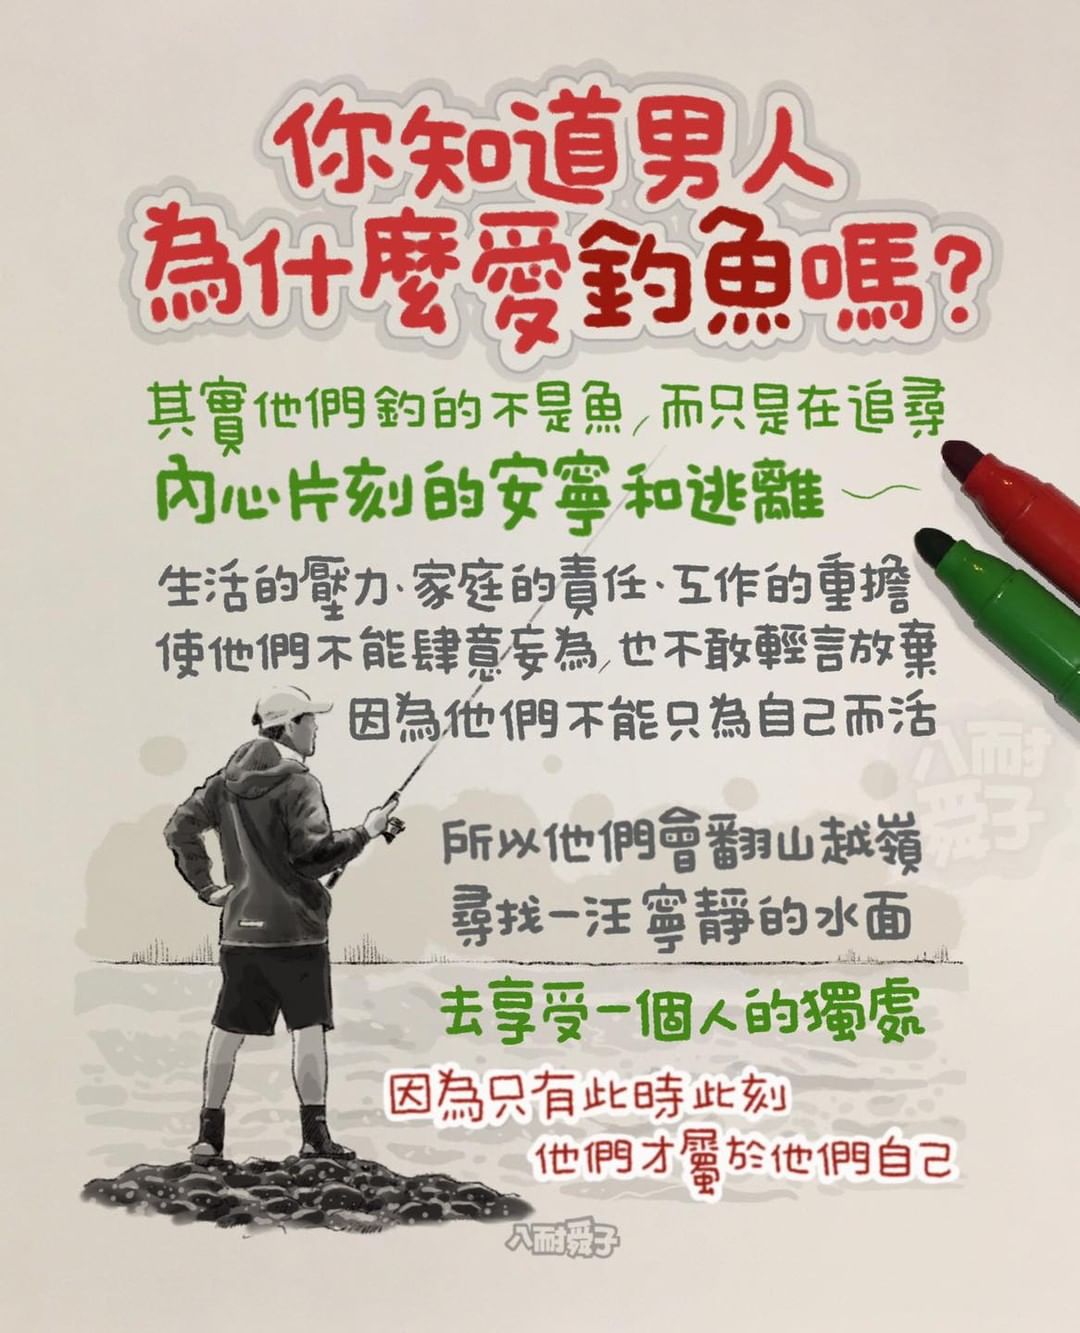 你知道男人
為什麼愛釣魚嗎?
其實他們釣的不是魚,而只是在追尋
內心片刻的安寧和逃離～
生活的壓力、家庭的責任、工作的重擔
使他們不能肆意妄為,也不敢輕言放棄
因為他們不能只為自己而活
八耐
舜子
所以他們會翻山越嶺
尋找一汪寧靜的水面
去享受一個人的獨處
因為只有此時此刻
他們才屬於他們自己
八耐舜子